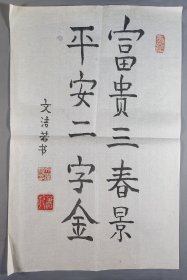 富贵三春景
平安二字金
文洁若书